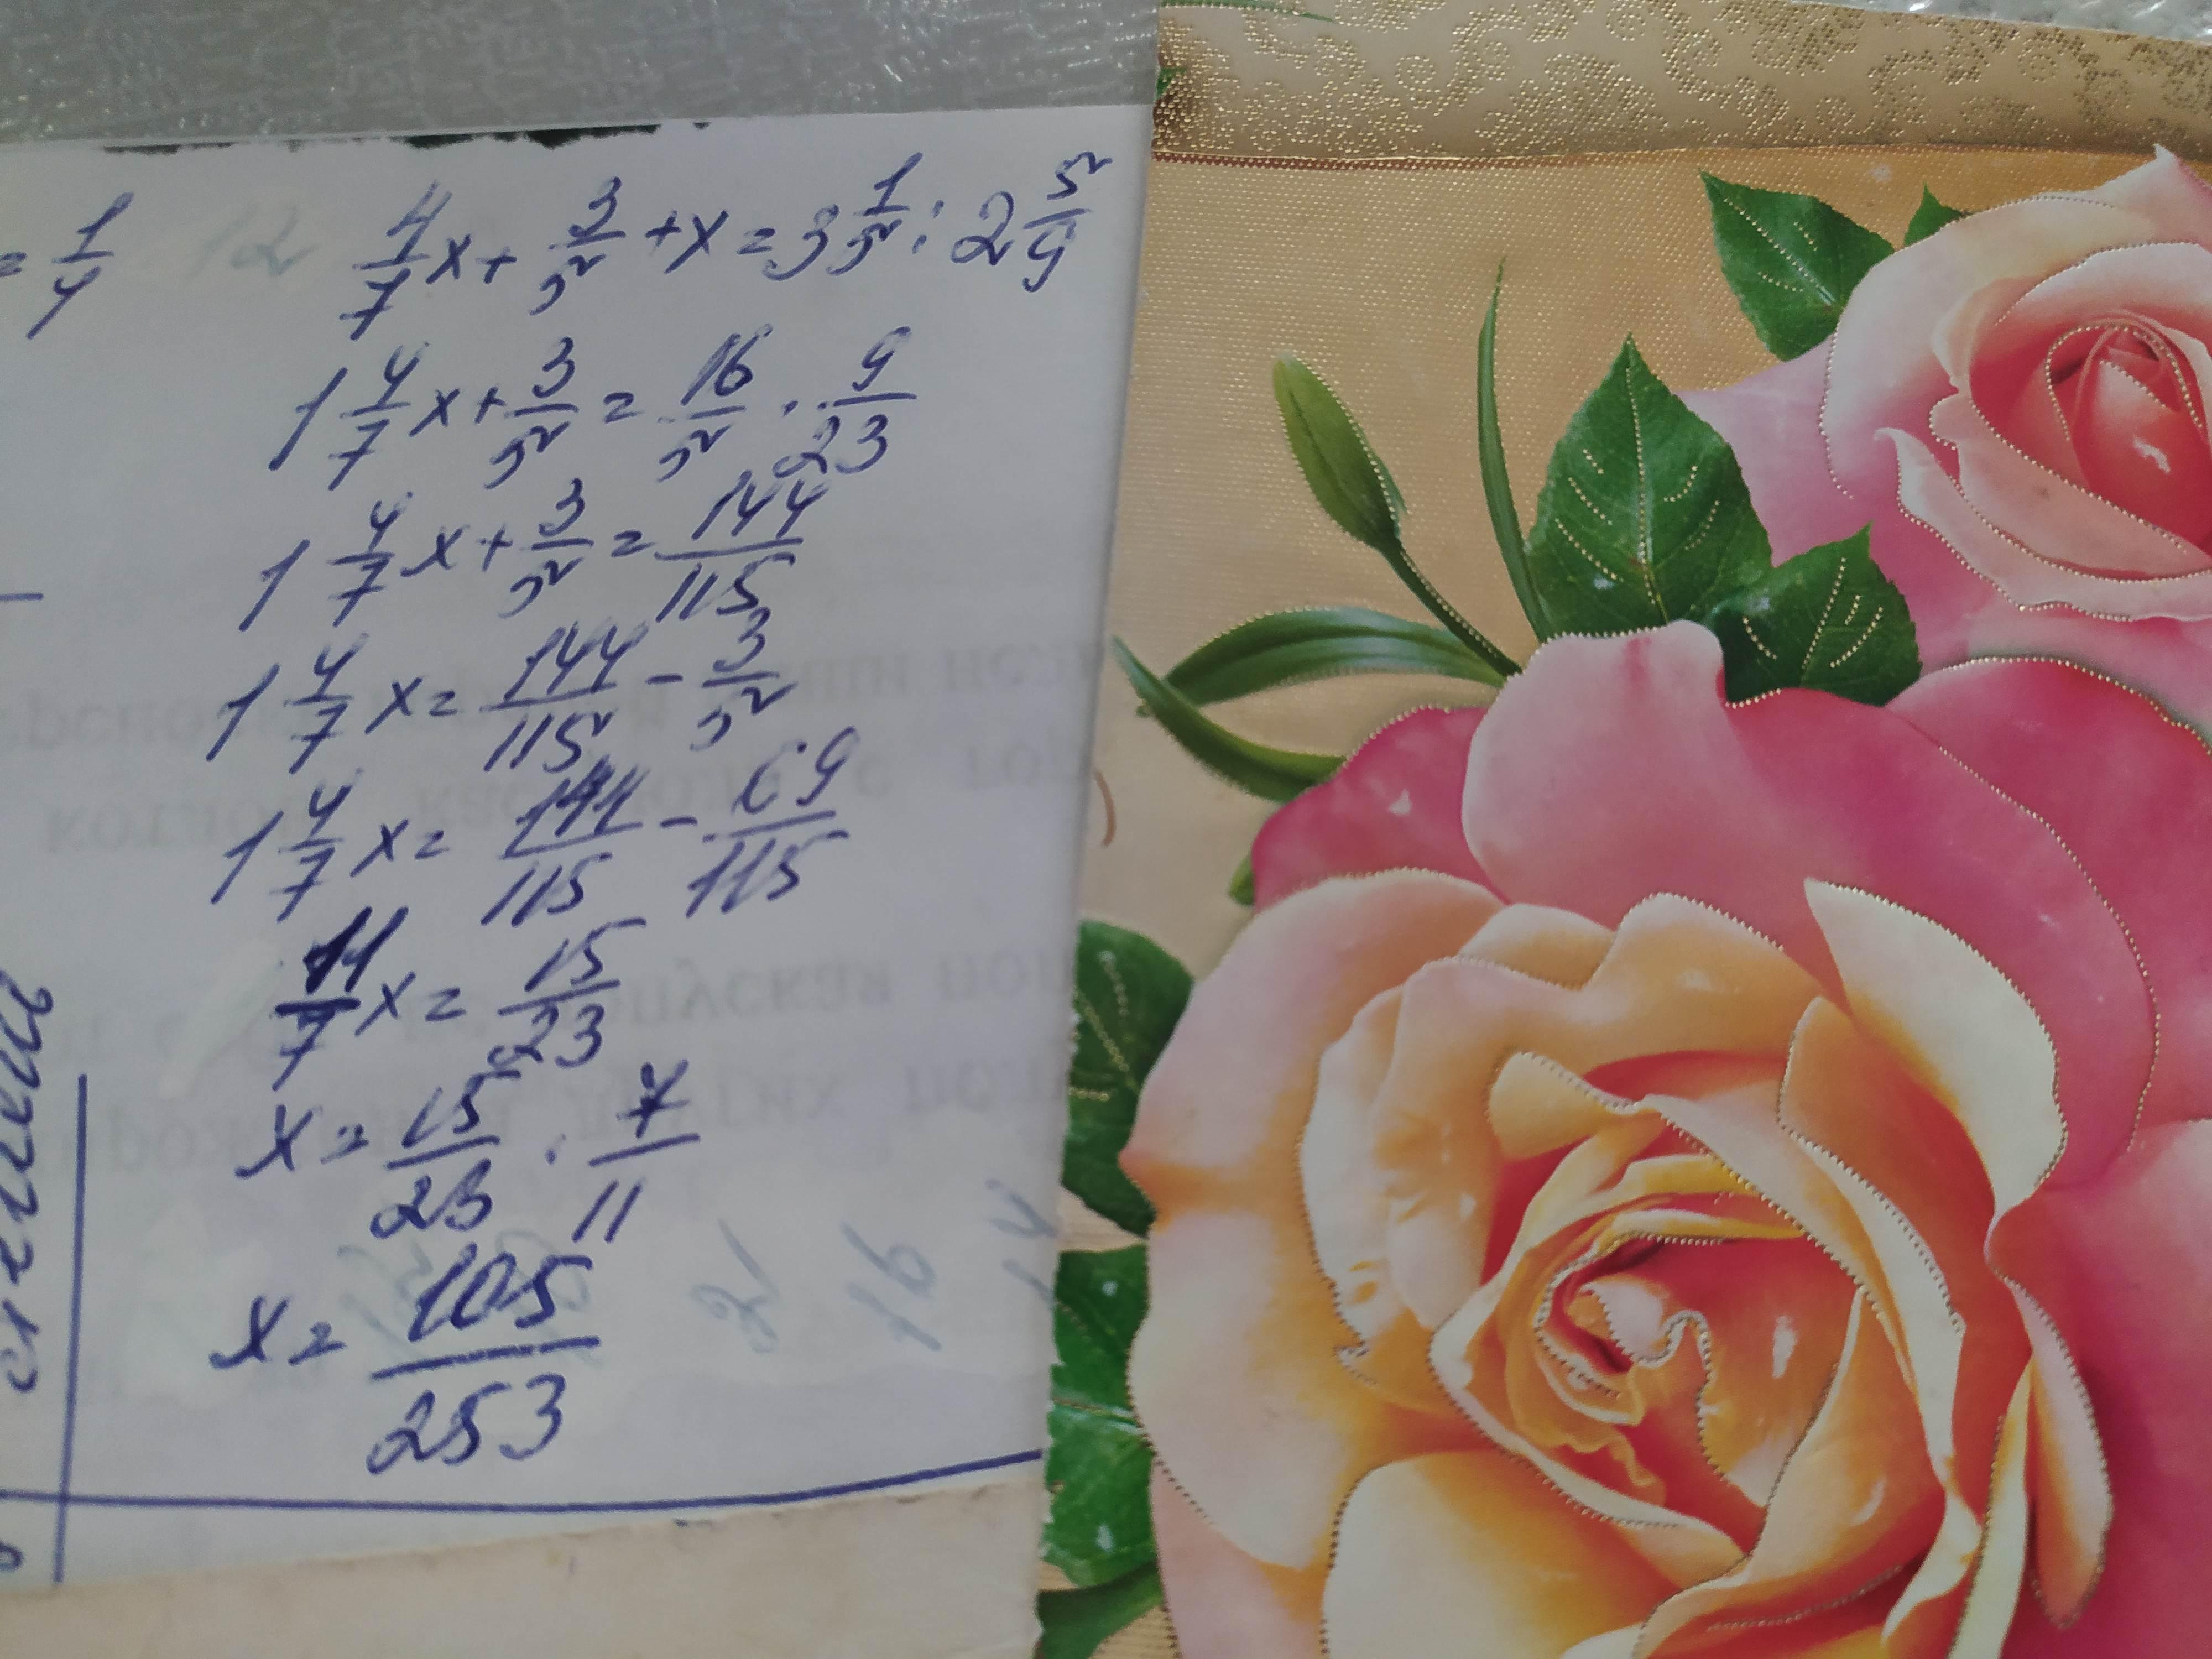 = 1/4
12
4/7 x + 3/5 + x = 3 1/5 : 2 5/9
1 4/7 x + 3/5 = 16/5 · 9/23
1 4/7 x + 3/5 = 144/115
1 4/7 x = 144/115 - 3/5
1 4/7 x = 144/115 - 69/115
11/7 x = 15/23
x = 15/23 · 7/11
x = 105/253